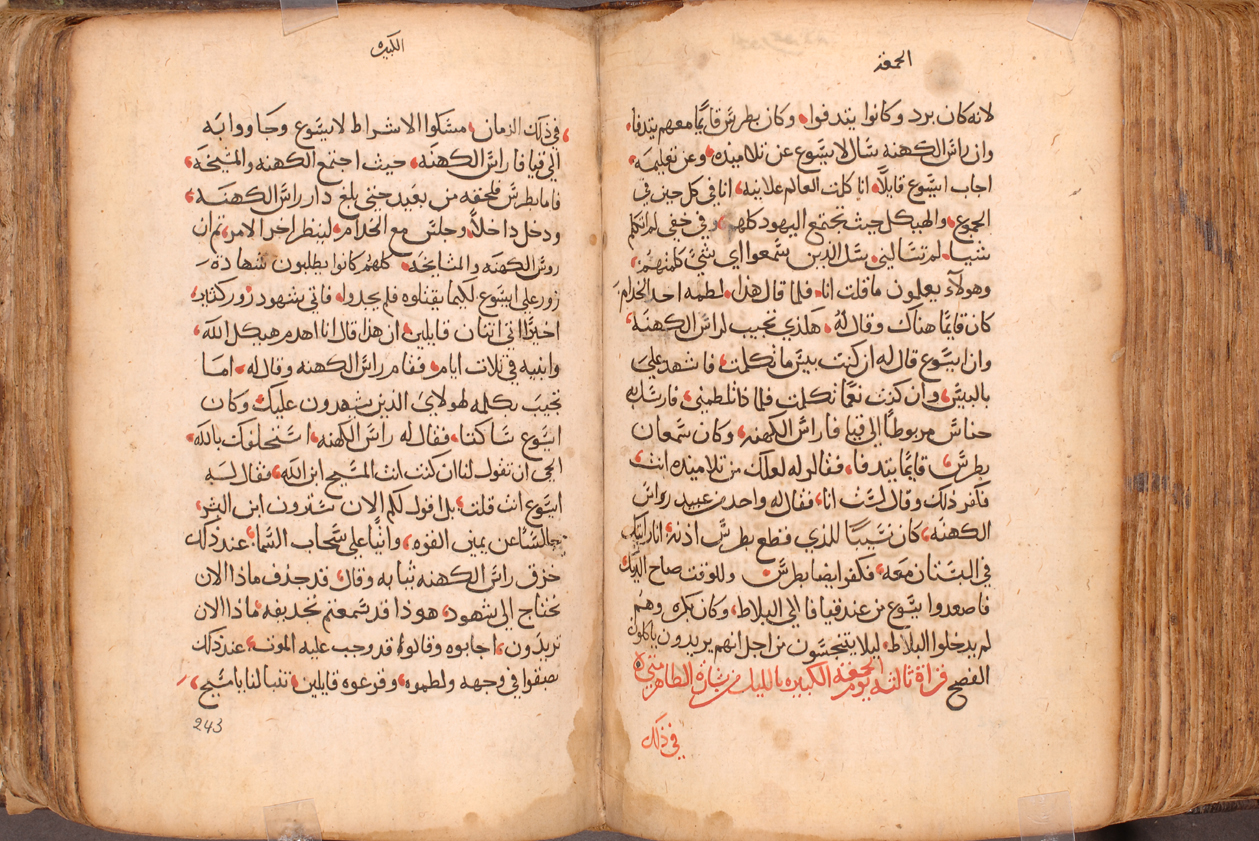 الجمعة
لانه كان برد وكانوا يتدفوا، وكان بطرس قايمًا معهم يتدفا،
وان راس الكهنه سال لايسوع عن تلاميذه، وعن تعليمه،
اجاب ايسوع قايلًا، انا كلمت العالم علانيه، انا في كل حين في
الجموع، والهيكل حيث تجتمع اليهود كلهم، وفي خفي لم اتكلم
شيا، لم تسالني، سل الذين سمعوا اي شي كلمتهم،
وهولآء يعلمون ما قلت انا، فلما قال هذا، لطمه احد الخدام،
كان قايمًا هناك وقال له، هكذي تجيب لراس الكهنه،
وان ايسوع قال له ان كنت بيس ما تكلمت، فاشهد علي
بالبيس، وان كنت نعمًا تكلمت فلماذا تلطمني، فارسل به
حناس مربوطًا الي قيافا راس الكهنه، وكان سمعان
بطرس، قايمًا يتدفا، فقالو له لعلك من تلاميذه انت،
فانكر ذلك وقال لست انا، فقال له واحد من عبيد رواس
الكهنه، كان نسيبًا للذي قطع بطرس اذنه، انا رايتك
في البستان معه، فكفر ايضا بطرس، وللوقت صاح الديك
فاصعدوا يسوع من عند قيافا الي البلاط، وكان بكره وهم
لم يدخلوا البلاط، ليلا يتنجسون من اجل انهم يريدون ياكلون
الفصح قراة ثالثه يوم الجمعه الكبيره بالليل من بشارة الطاهر متي
في ذلك
الكبيره
في ذلك الزمان، مسكوا الاشراط لايسوع وجاووا به
الي قيافا راس الكهنه، حيث اجتمع الكهنه والمشيخه،
فاما بطرس فلحقه من بعيد حتي بلغ دار راس الكهنه،
ودخل داخلًا، وجلس مع الخدام، لينظر اخر الامر، ثم ان
روس الكهنه والمشايخه، كلهم كانوا يطلبون شهادة
زور علي ايسوع لكيما يقتلوه فلم يجدوا، فاتي شهود زور كثير،
اخيرًا اتي اتنان قايلين، ان هذا قال انا اهدم هيكل الله،
وابنيه في تلات ايام، فقام راس الكهنه وقال له، اما
تجيب بكلمه لهولاي الذين يشهدون عليك، وكان
ايسوع ساكتا، فقال له راس الكهنه، استحلفك بالله،
الحي ان تقول لنا ان كنت انت المسيح ابن الله، فقال له
ايسوع انت قلت، بل اقول لكم الان سترون ابن البشر،
جالسًا عن يمين القوه، واتيًا علي سحاب السما، عند ذلك
خزق راس الكهنه ثيابه وقال، قد جذف ماذا الان
نحتاج الي شهود، هوذا قد سمعتم تجديفه، ماذا الان
تريدون، اجابوه وقالوا، قد وجب عليه الموته، عند ذلك
بصقوا في وجهه ولطموه، وقرعوه قايلين، تنبا لنا يا مسيح،
243